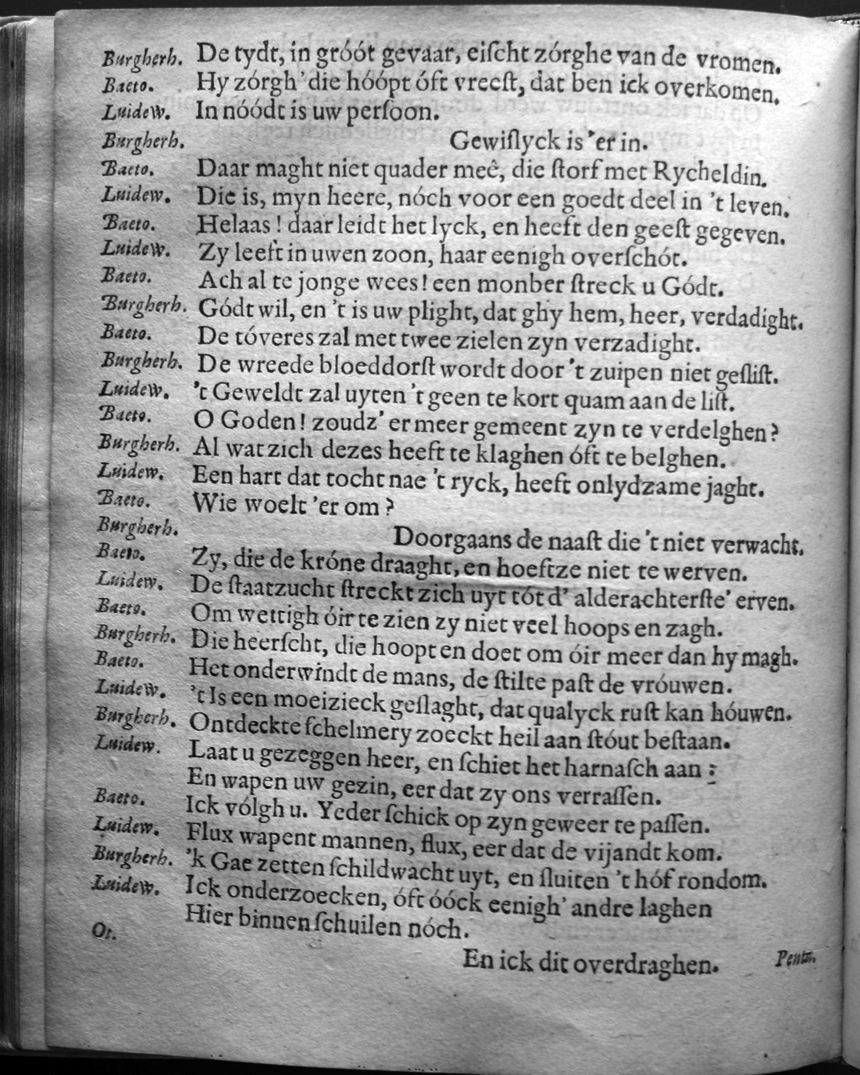 Burgherh. De tydt, in gróót gevaar, eiſcht zórghe van de vromen.
Baeto. Hy zórgh' die hóópt óft vreeſt, dat ben ick overkomen.
Luidew. In nóódt is uw perſoon.
Burgherh. Gewiſlyck is 'er in.
Baeto. Daar maght niet quader meê, die ſtorf met Rycheldin.
Luidew. Die is, myn heere, nóch voor een goedt deel in 't leven.
Baeto. Helaas! daar leidt het lyck, en heeft den geeſt gegeven.
Luidew. Zy leeft in uwen zoon, haar eenigh overſchót.
Baeto. Ach al te jonge wees! een monber ſtreck u Gódt.
Burgherh. Gódt wil, en 't is uw plight, dat ghy hem, heer, verdadight.
Baeto. De tóveres zal met twee zielen zyn verzadight.
Burgherh. De wreede bloeddorſt wordt door 't zuipen niet geſliſt.
Luidew. 't Geweldt zal uyten 't geen te kort quam aan de liſt.
Baeto. O Goden! zoudz' er meer gemeent zyn te verdelghen?
Burgherh. Al wat zich dezes heeft te klaghen óft te belghen.
Luidew. Een hart dat tocht nae 't ryck, heeft onlydzame jaght.
Baeto. Wie woelt 'er om?
Burgherh. Doorgaans de naaſt die 't niet verwacht.
Baeto. Zy, die de króne draaght, en hoeftze niet te werven.
Luidew. De ſtaatzucht ſtreckt zich uyt tót d' alderachterſte' erven.
Baeto. Om wettigh óir te zien zy niet veel hoops en zagh.
Burgherh. Die heerſcht, die hoopt en doet om óir meer dan hy magh.
Baeto. Het onderwindt de mans, de ſtilte paſt de vróuwen.
Luidew. 't Is een moeizieck geſlaght, dat qualyck ruſt kan hóuwen.
Burgherh. Ontdeckte ſchelmery zoeckt heil aan ſtóut beſtaan.
Luidew. Laat u gezeggen heer, en ſchiet het harnaſch aan:
En wapen uw gezin, eer dat zy ons verraſſen.
Baeto. Ick vólgh u. Yeder ſchick op zyn geweer te paſſen.
Luidew. Flux wapent mannen, flux, eer dat de vijandt kom.
Burgherh. 'k Gae zetten ſchildwacht uyt, en ſluiten 't hóf rondom.
Luidew. Ick onderzoecken, óft óóck eenigh' andre laghen
Hier binnen ſchuilen nóch.
Ot. En ick dit overdraghen.